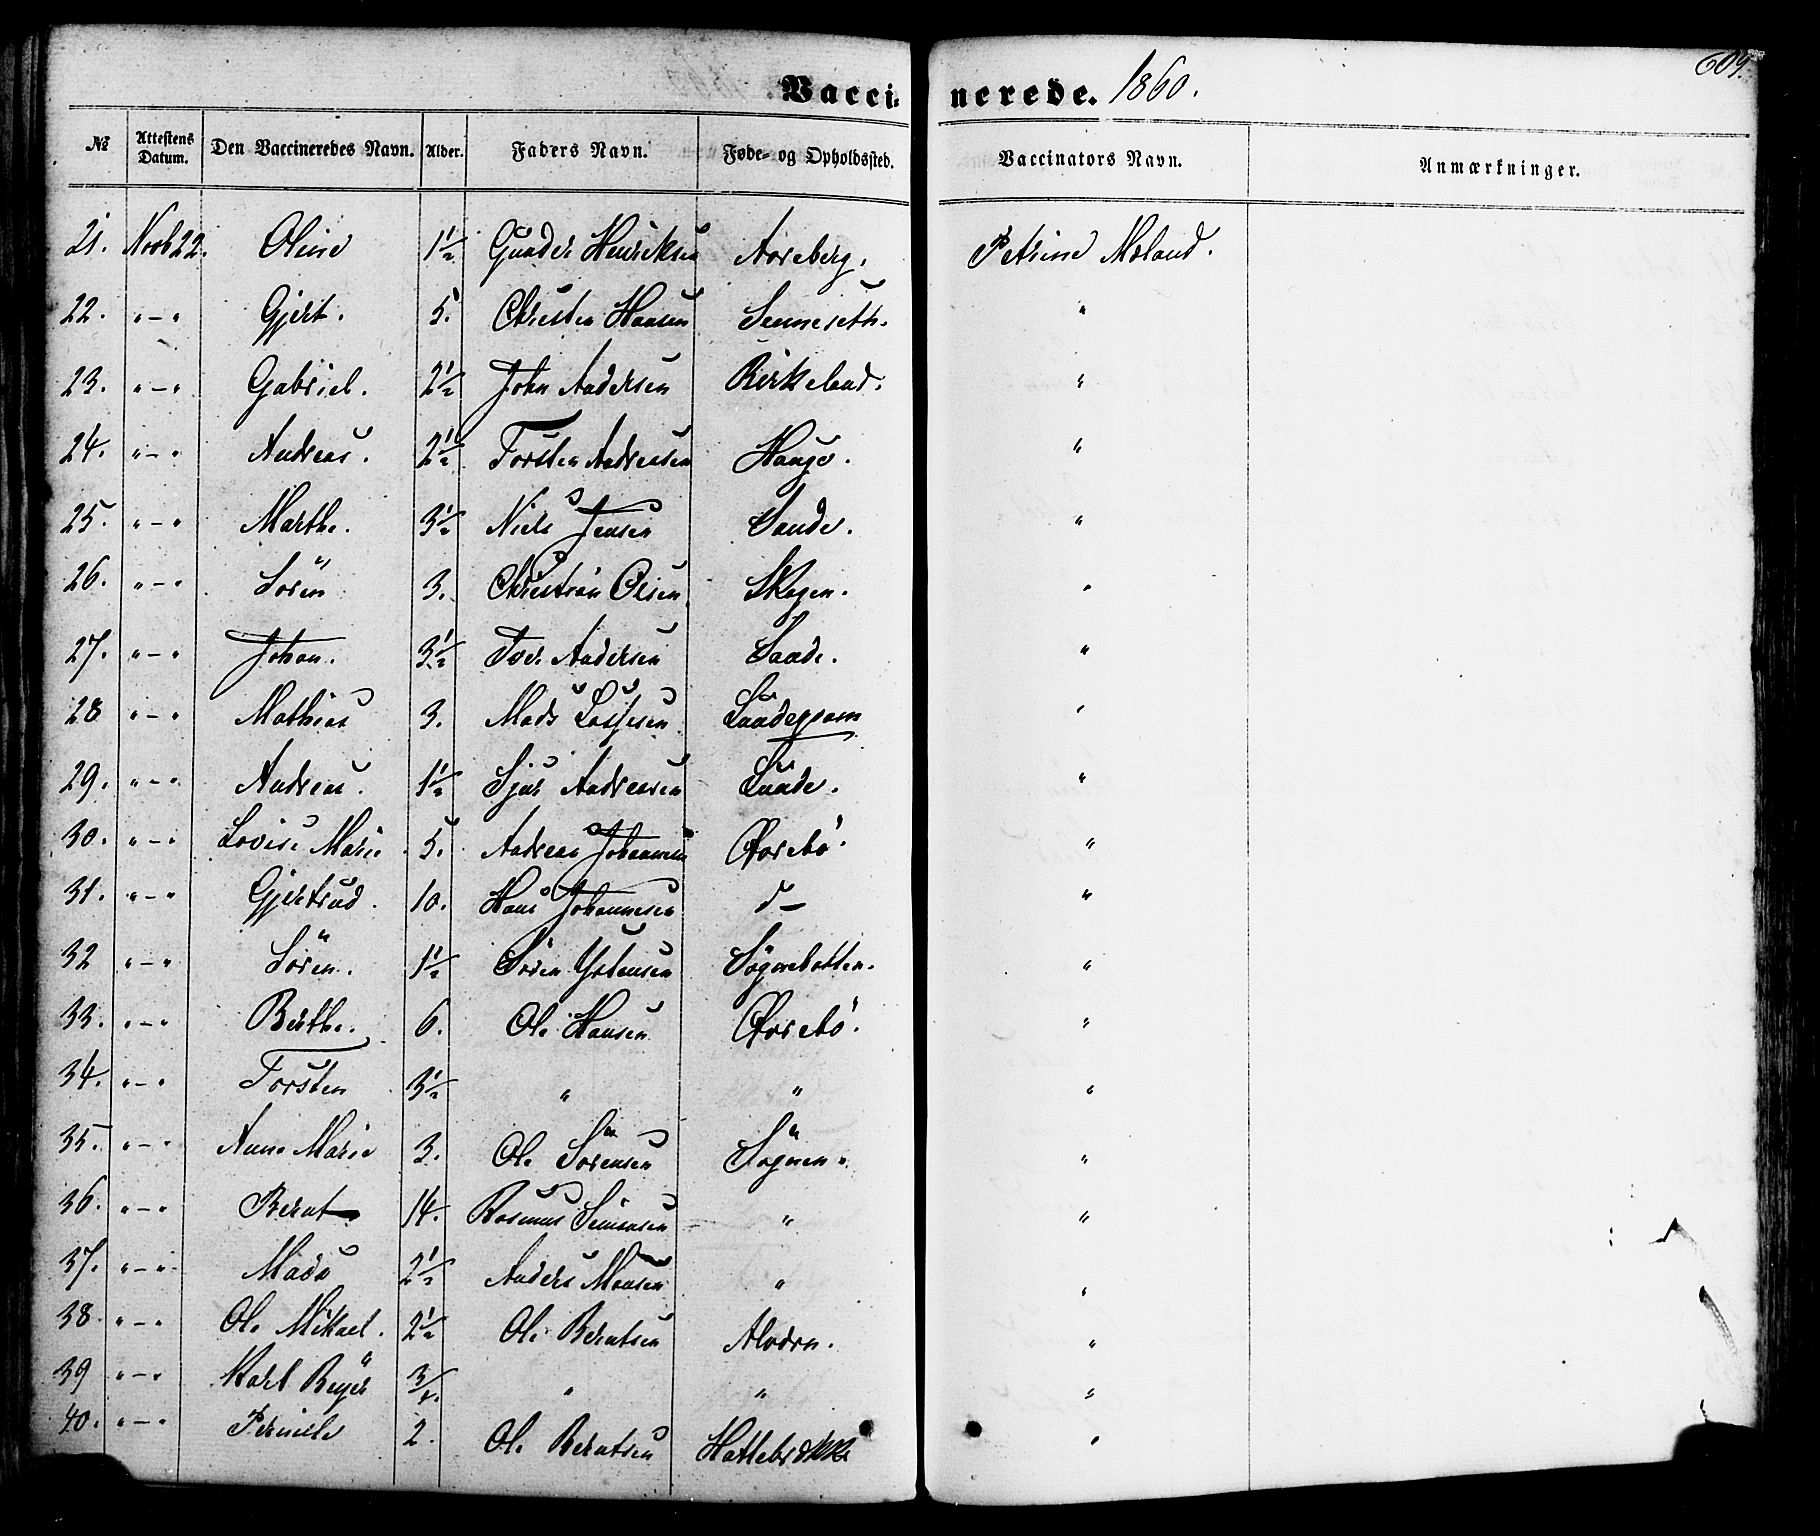 609.
Vaccinerede. 1860.
№ Attestens Datum. Den Vaccineredes Navn. Alder. Faders Navn. Føde- og Opholdssted. Vaccinators Navn. Anmærkninger.
21. Novb 22. Oline 1½ Gunder Henriksen Aareberg. Petrine Moland.
22. "–" Gjert. 5. Christen Hansen "
23. "–" Gabriel. 2½ John Andersen Birkeland. "
24. "–" Andreas. 2½ Torsten Andreasen Hauge. "
25. "–" Marthe. 3½ Niels Jensen Sande. "
26. "–" Sören 3. Christian Olsen Skogen. "
27. "–" Johan. 3½ Tove Andersen Saade. "
28 "–" Mathias 3. Mads "
29. "–" Andreas. 1½ Sjur Andreasen "
30. "–" Lovise Marie 5. Andreas Johannesen "
31. "–" Gjertrud. 10. Hans Johannesen d– "
32 "–" Sören. 1½ Sören Ystensen Sögnebotten. "
33. "–" Berthe. 6. Ole Hansen "
34. "–" Torsten 3½ " " "
35. "–" Anne Marie 3. Ole Sörensen Sögnen. "
36. "–" Berent 14. Rasmus Simonsen " "
37. "–" Mads 2½ Anders Monsen " "
38. "–" Ole Mikael. 2½ Ole Berntsen "
39 "–" Karl Beyer 3/4. " " "
40. "–" Pernille 2. Ole Berntsen "